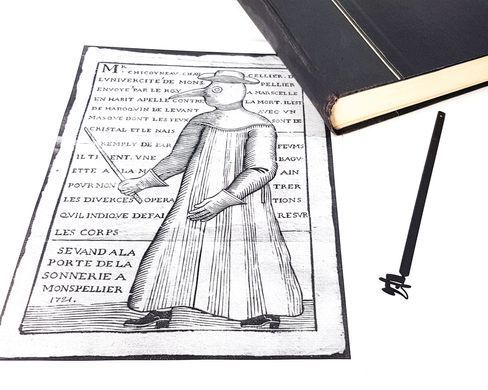 Mr. CHICOYNEAU CHAN CELLIER. D
LVNIVERCITE DE MONS PELLIER
ENVOYÉ PAR LE ROY A MARSCELLE
EN HABIT APELLE CONTRE LA MORT. IL EST
DE MAROQUIN DE LEVANT AVEC VN
MASQVE DONT LES YEUX SONT DE
CRISTAL ET LE NAIS
REMPLY DE PAR FEUMS
IL TIENT. VNE BAGU
ETTE A LA MA AIN
POUR MON TRER
LES DIVERCES OPERA TIONS
QUIL INDIQUE DE FAI RE SUR
LES CORPS
SE VAND A LA
PORTE DE LA
SONNERIE A
MONSPELLIER
1721.